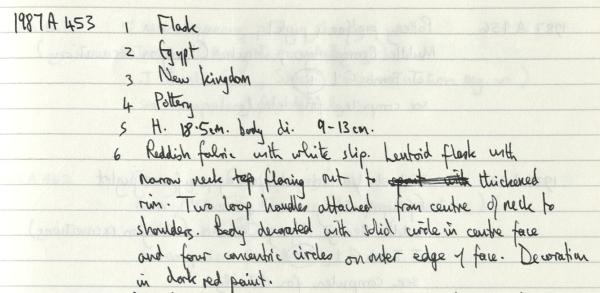 1987 A 453 1 Flask
2 Egypt
3 New Kingdom
4 Pottery
5 H. 18.5cm. body di. 9-13cm.
6 Reddish fabric with white slip. Lentoid flask with
narrow neck flaring out to thickened
rim. Two loop handles attached from centre of neck to
shoulders. Body decorated with solid circle in centre face
and four concentric circles on outer edge of face. Decoration
in dark red paint.